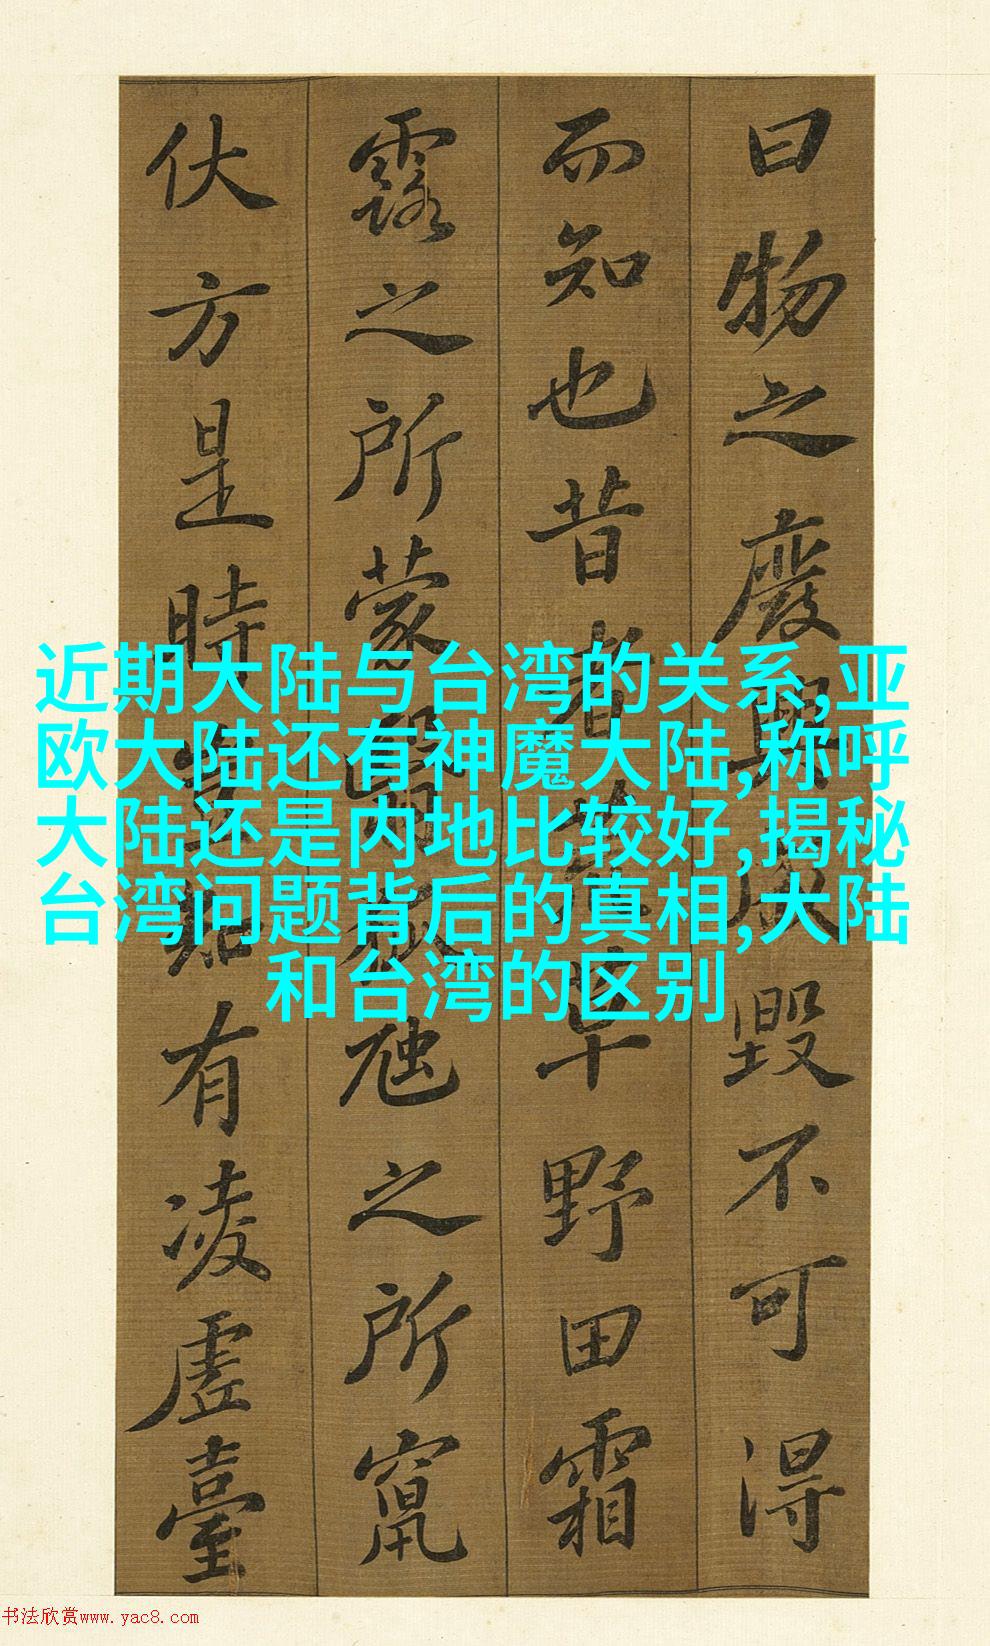 曰物之廢興成毀不可得
而知也昔者荒草野田霜
露之所蒙翳狐虺之所竄
伏方是時豈知有凌虛臺
近期大陆与台湾的关系,亚
欧大陆还有神魔大陆,称呼
大陆还是内地比较好,揭秘
台湾问题背后的真相,大陆
和台湾的区别
书法欣赏www.yac8.com